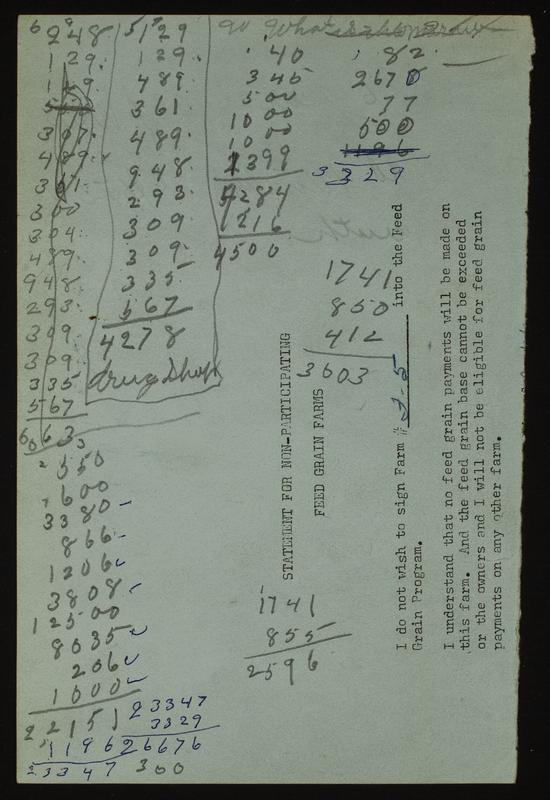 248
129
129
307
489
361
300
304
489
948
293
309
309
335
567
6063
550
600
3380
866
1206
3808
12500
8035
206
1000
22151
1196
23347
5129
129
489
361
489
948
293
309
309
335
567
4278
drug Shop
40
345
500
1000
1000
1399
4284
1216
4500
82
2670
77
500
1196
3329
1741
850
412
3603
1741
855
2596
23347
3329
26676
300
STATEMENT FOR NON-PARTICIPATING
FEED GRAIN FARMS
I do not wish to sign Farm # into the Feed
Grain Program.
I understand that no feed grain payments will be made on
this farm. And the feed grain base cannot be exceeded
or the owners and I will not be eligible for feed grain
payments on any other farm.